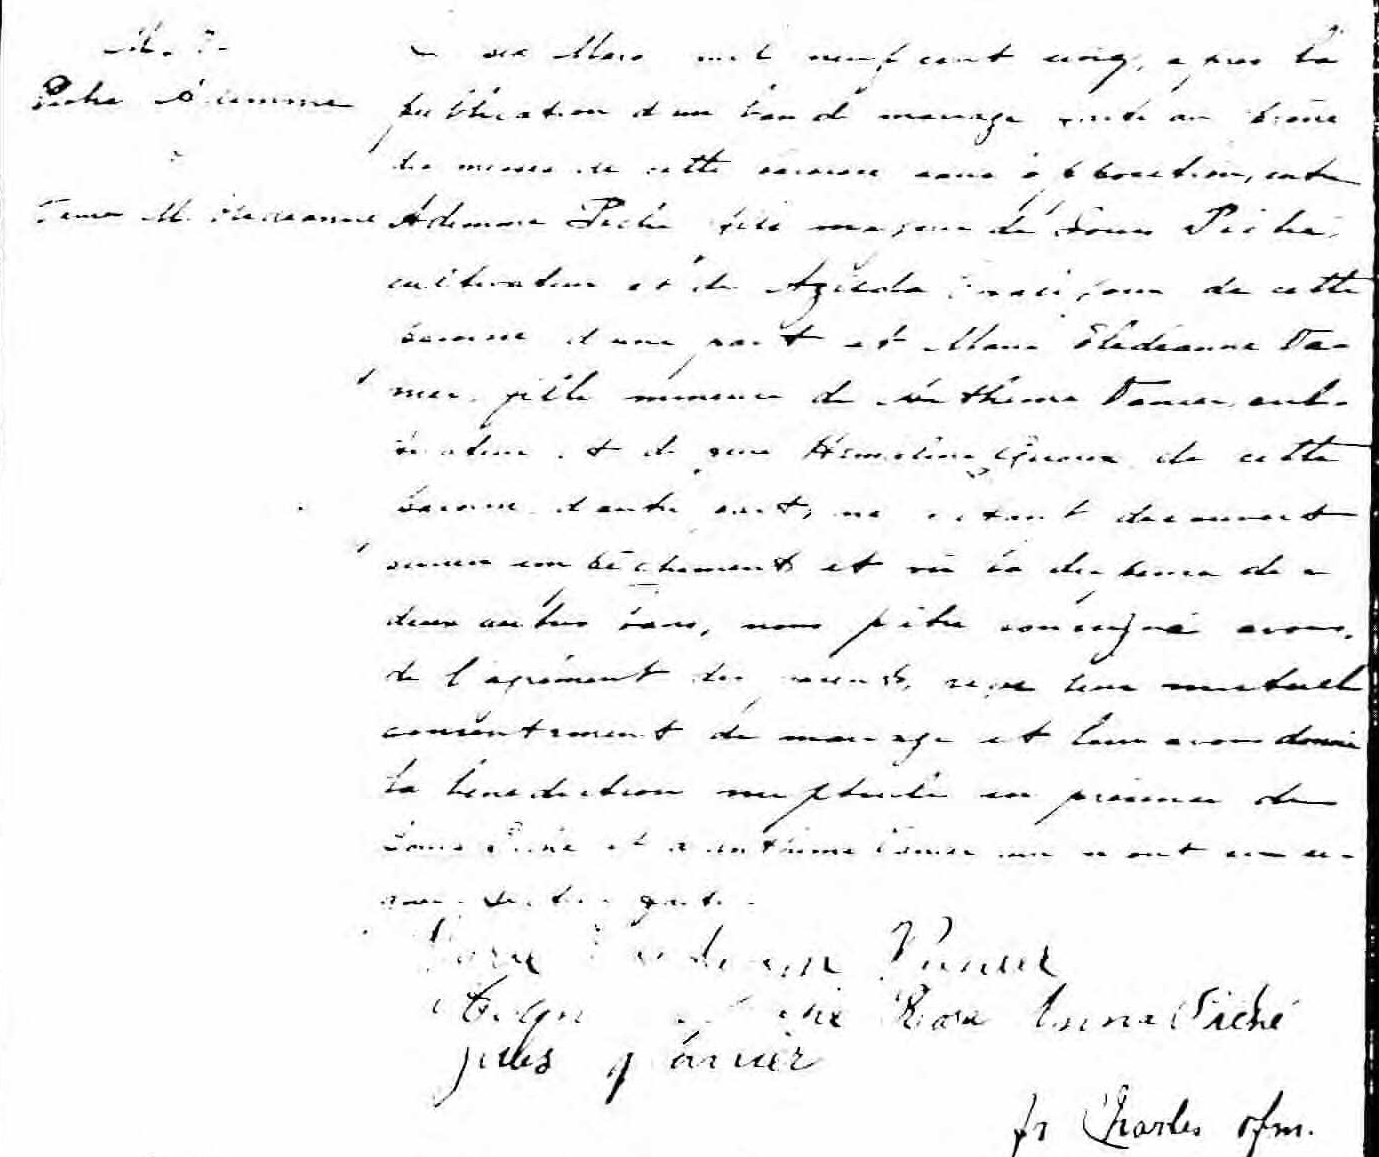 M. 7.
Piché Ademma
&
M. Eledeanne
Le six Mars mil neuf cent cinq, apres la
publication d'un ban de mariage faite au prône
des messes de cette paroisse sans opposition, entre
Ademma Piché fils majeur de Louis Piché,
cultivateur et de Azilda de cette
paroisse d'une part et Marie Eledeanne Va-
nier, fille mineure de Anthime Vanier, culti-
vateur et de feue Hermeline Giroux de cette
paroisse d'autre part, ne s'étant découvert
aucun empêchement et vu la dispense de
deux autres bans, nous prêtre soussigné avons,
de l'agrément des parents, reçu leur mutuel
consentement de mariage et leur avons donné
la bénédiction nuptiale en presence de
Louis Piché et Anthime Vanier qui n'ont
signer. Lecture faite.
Marie Vanier
Rose Anna Piché
Jules Vanier
fr Charles ofm.